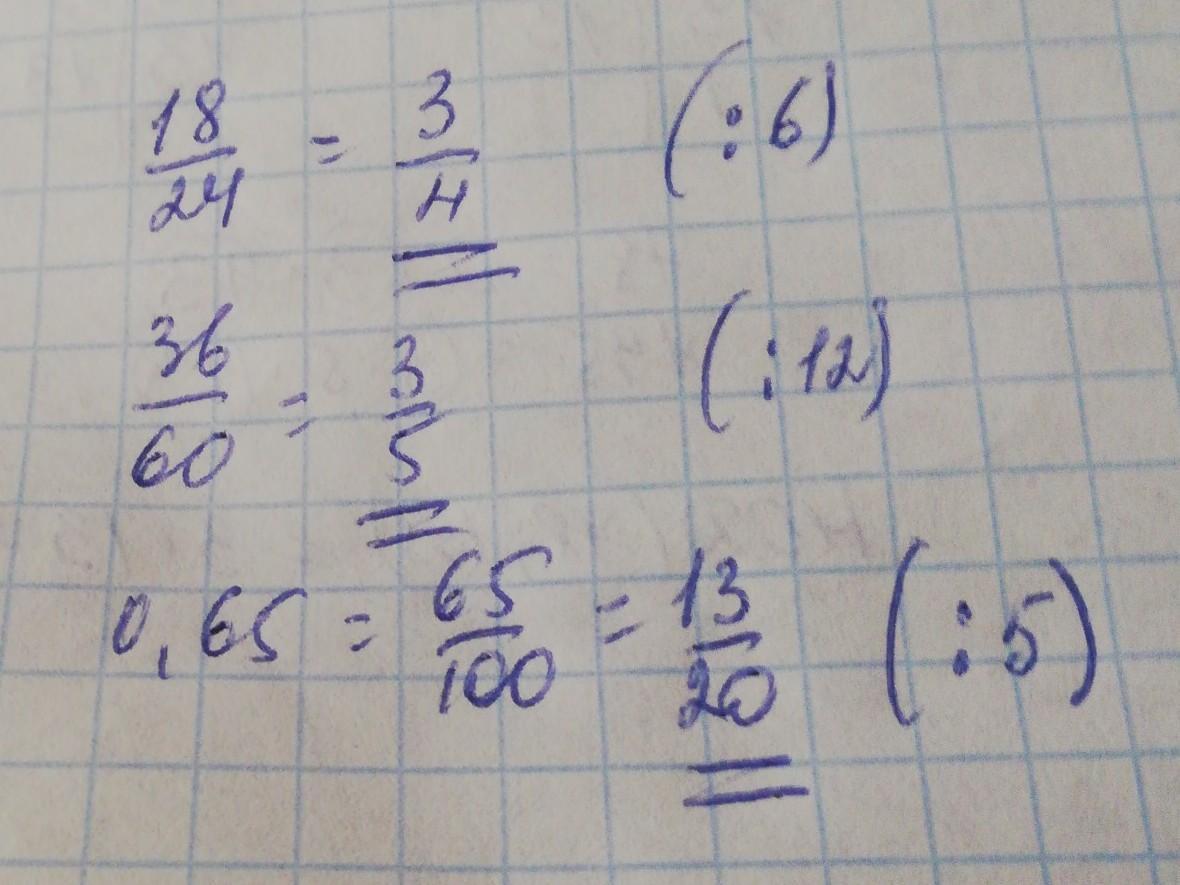 18/24 = 3/4 (:6)
36/60 = 3/5 (:12)
0,65 = 65/100 = 13/20 (:5)